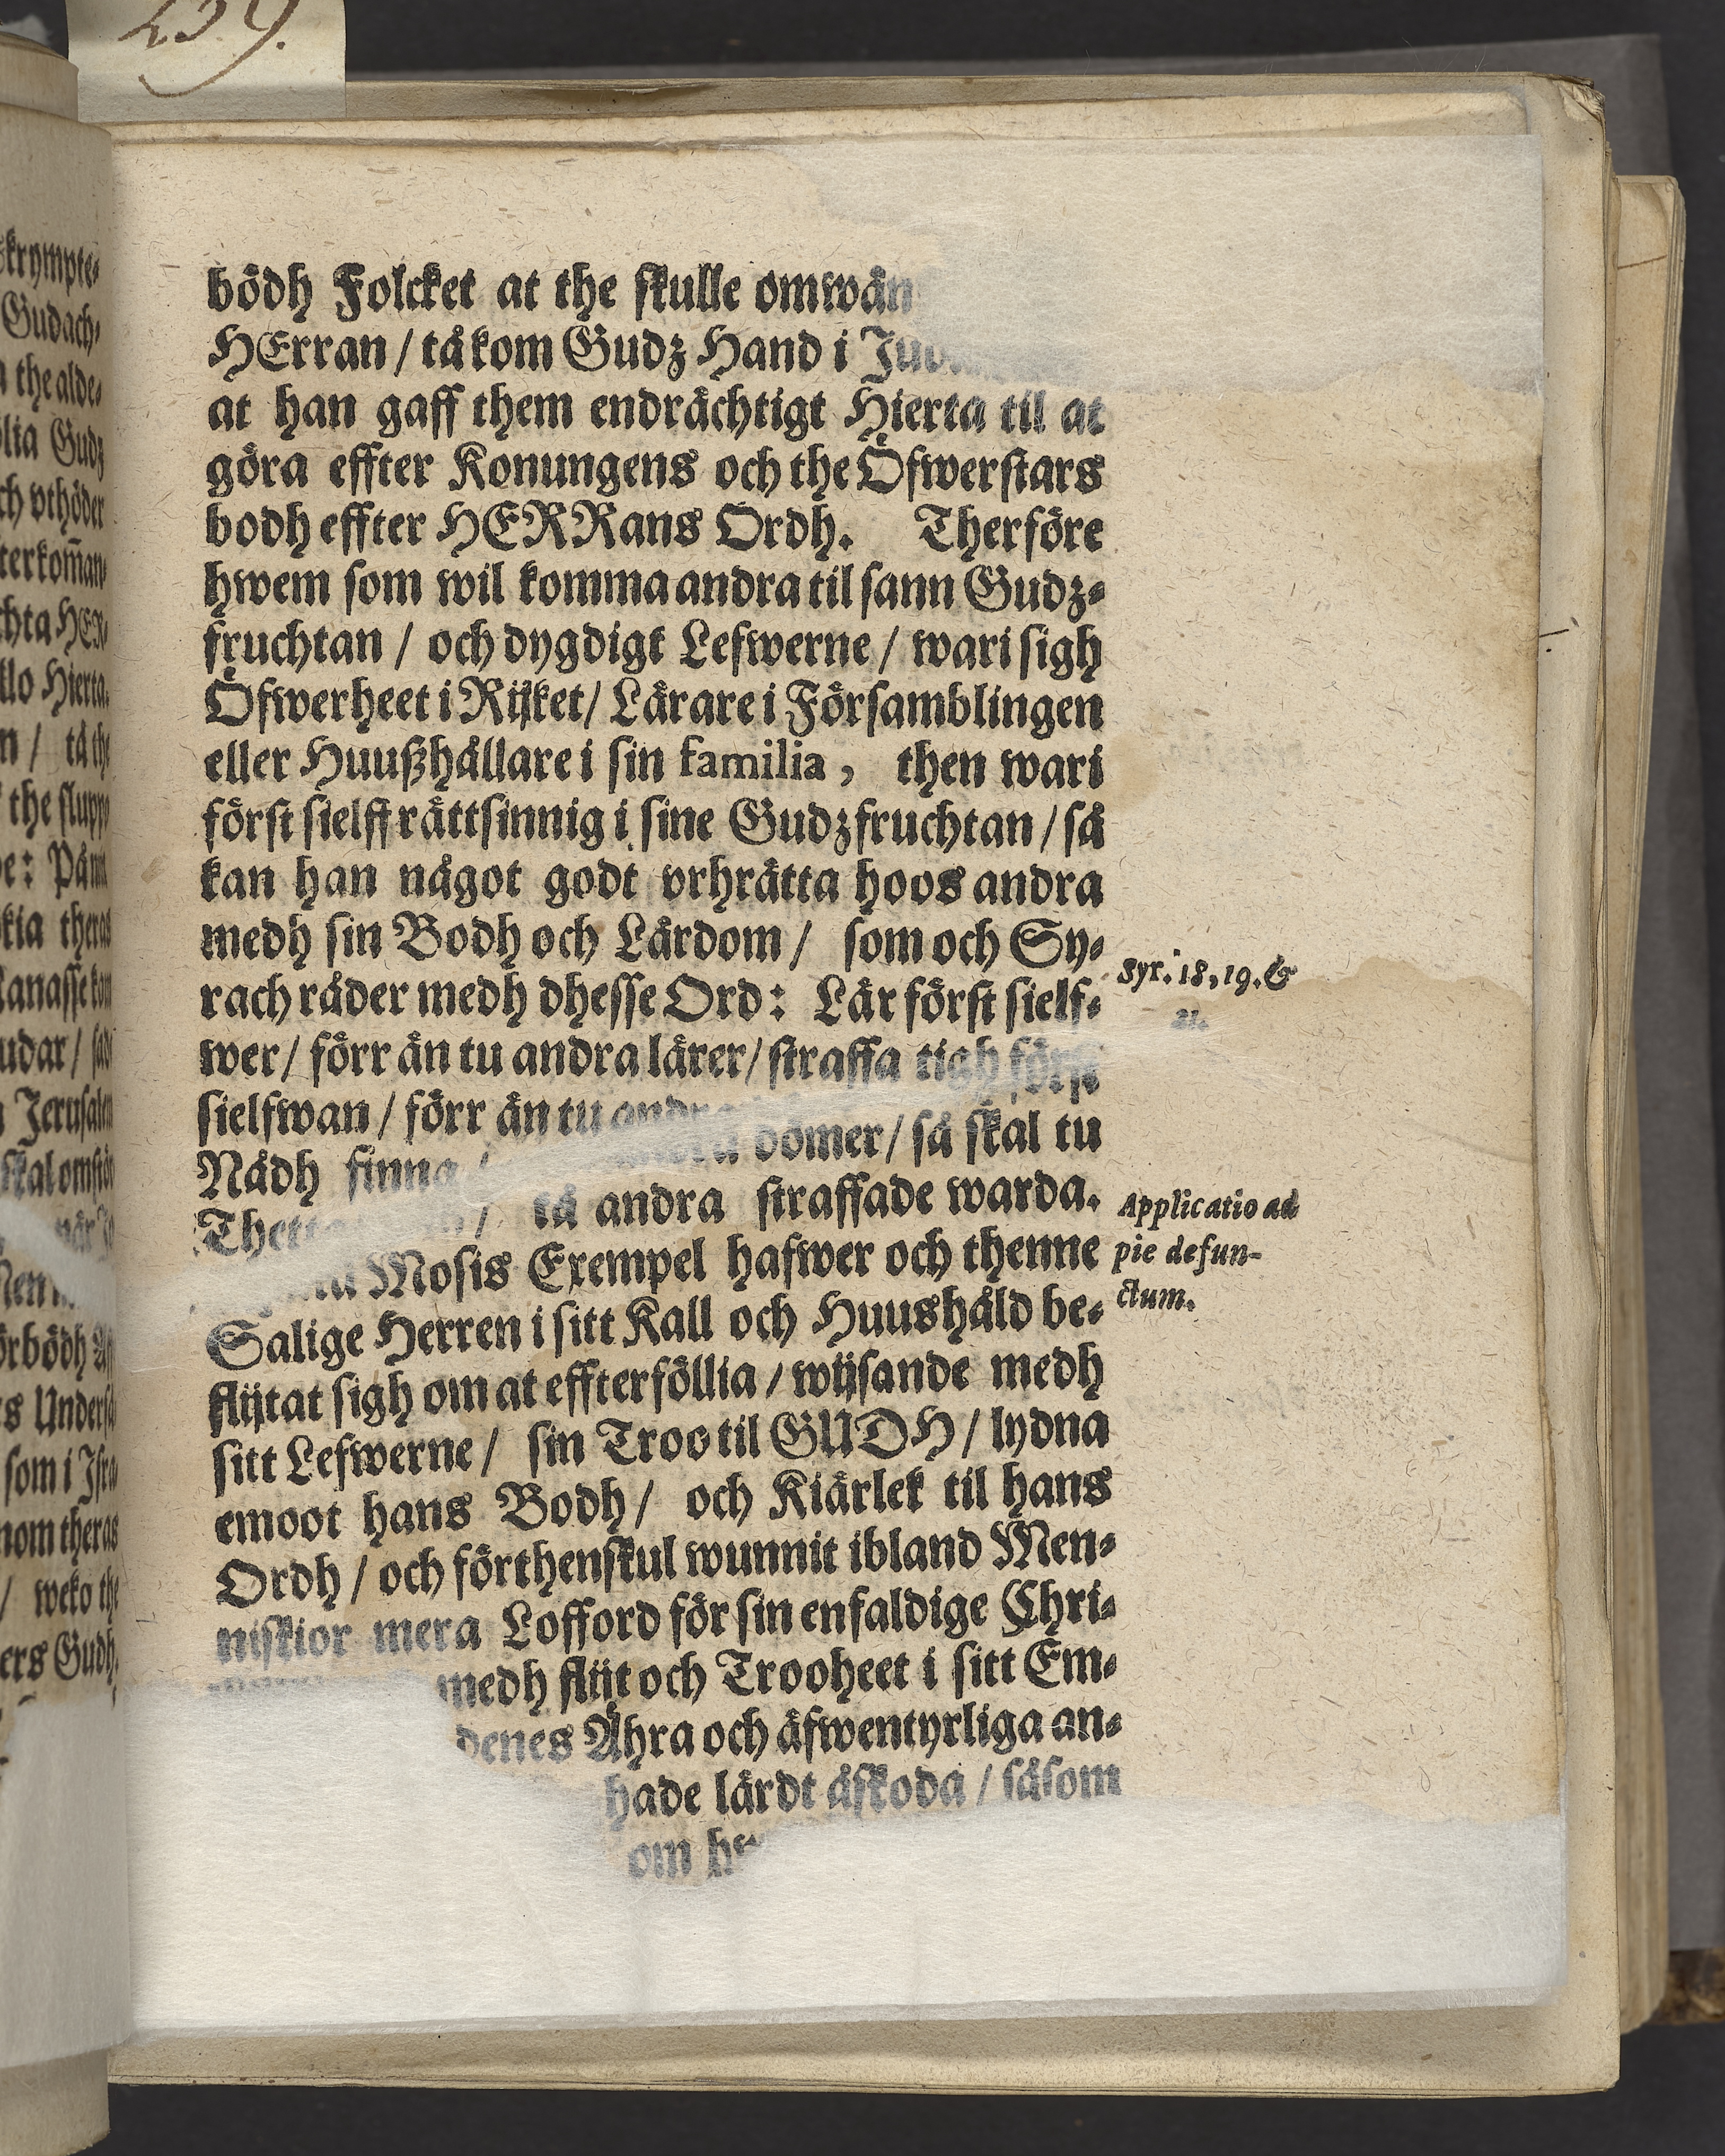 239.
bödh Folcket at the skulle omwän
HErran / tå kom Gudz Hand i
at han gaff them endrächtigt Hierta til at
göra effter Konungens och the Öfwerstars
bodh effter HERRans Ordh. Therföre
hwem som wil komma andra til sann Gudz-
fruchtan / och dygdigt Lefwerne / wari sigh
Öfwerheet i Rijket / Lärare i Församblingen
eller Huußhållare i sin familia, then wari
först sielff rättsinnig i sine Gudzfruchtan / så
kan han något godt vthrätta hoos andra
medh sin Bodh och Lärdom / som och Sy-
rach råder medh dhesse Ord: Lär först sielf-
wer / förr än tu andra lärer / straffa tigh först
sielfwan / förr än tu andra dömer / så skal tu
Nådh finna / tå andra straffade warda.
Mosis Exempel hafwer och thenne
Salige Herren i sitt Kall och Huushåld be-
flijtat sigh om at effterföllia / wijsande medh
sitt Lefwerne / sin Troo til GUDH / lydna
emoot hans Bodh / och Kiärlek til hans
Ordh / och förthenskul wunnit ibland Men-
niskior mera Lofford för sin enfaldige Chri-
medh flijt och Trooheet i sitt Em-
denes Ähra och äfwentyrliga an-
hade lärdt åskoda / såsom
om
Syr. 18, 19. &
21.
Applicatio ad
pie defun-
ctum.
skrympte-
Gudach-
the alde-
Gudz
vthöder
Hierta.
the slupp
Jerusalem
förbödh
som i Isra
nom theras
/ weko the
ers Gudh.